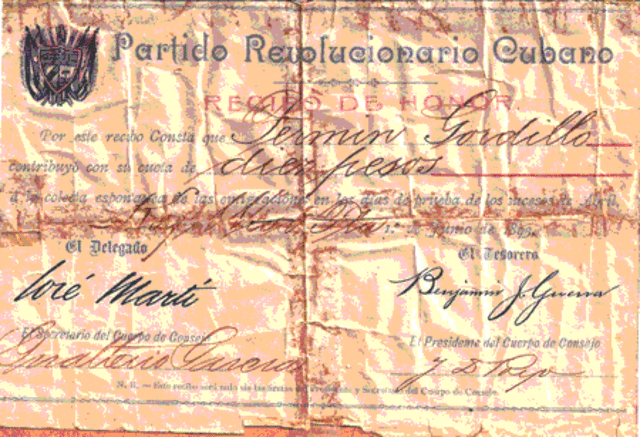 Partido Revolucionario Cubano
RECIBO DE HONOR.
Por este recibo Consta que Fermin Gordillo
contribuyó con su cuota de diez pesos
á la colecta espontánea de las emigraciones en los dias de prueba de los sucesos de Abril.
1.º de Junio de 189
El Delegado
El Tesorero
José Martí
Benjamin J. Guerra
El Secretario del Cuerpo de Consejo
El Presidente del Cuerpo de Consejo
Gualterio García
J D Poyo
N. B. — Este recibo será nulo sin las firmas del Presidente y Secretario del Cuerpo de Consejo.